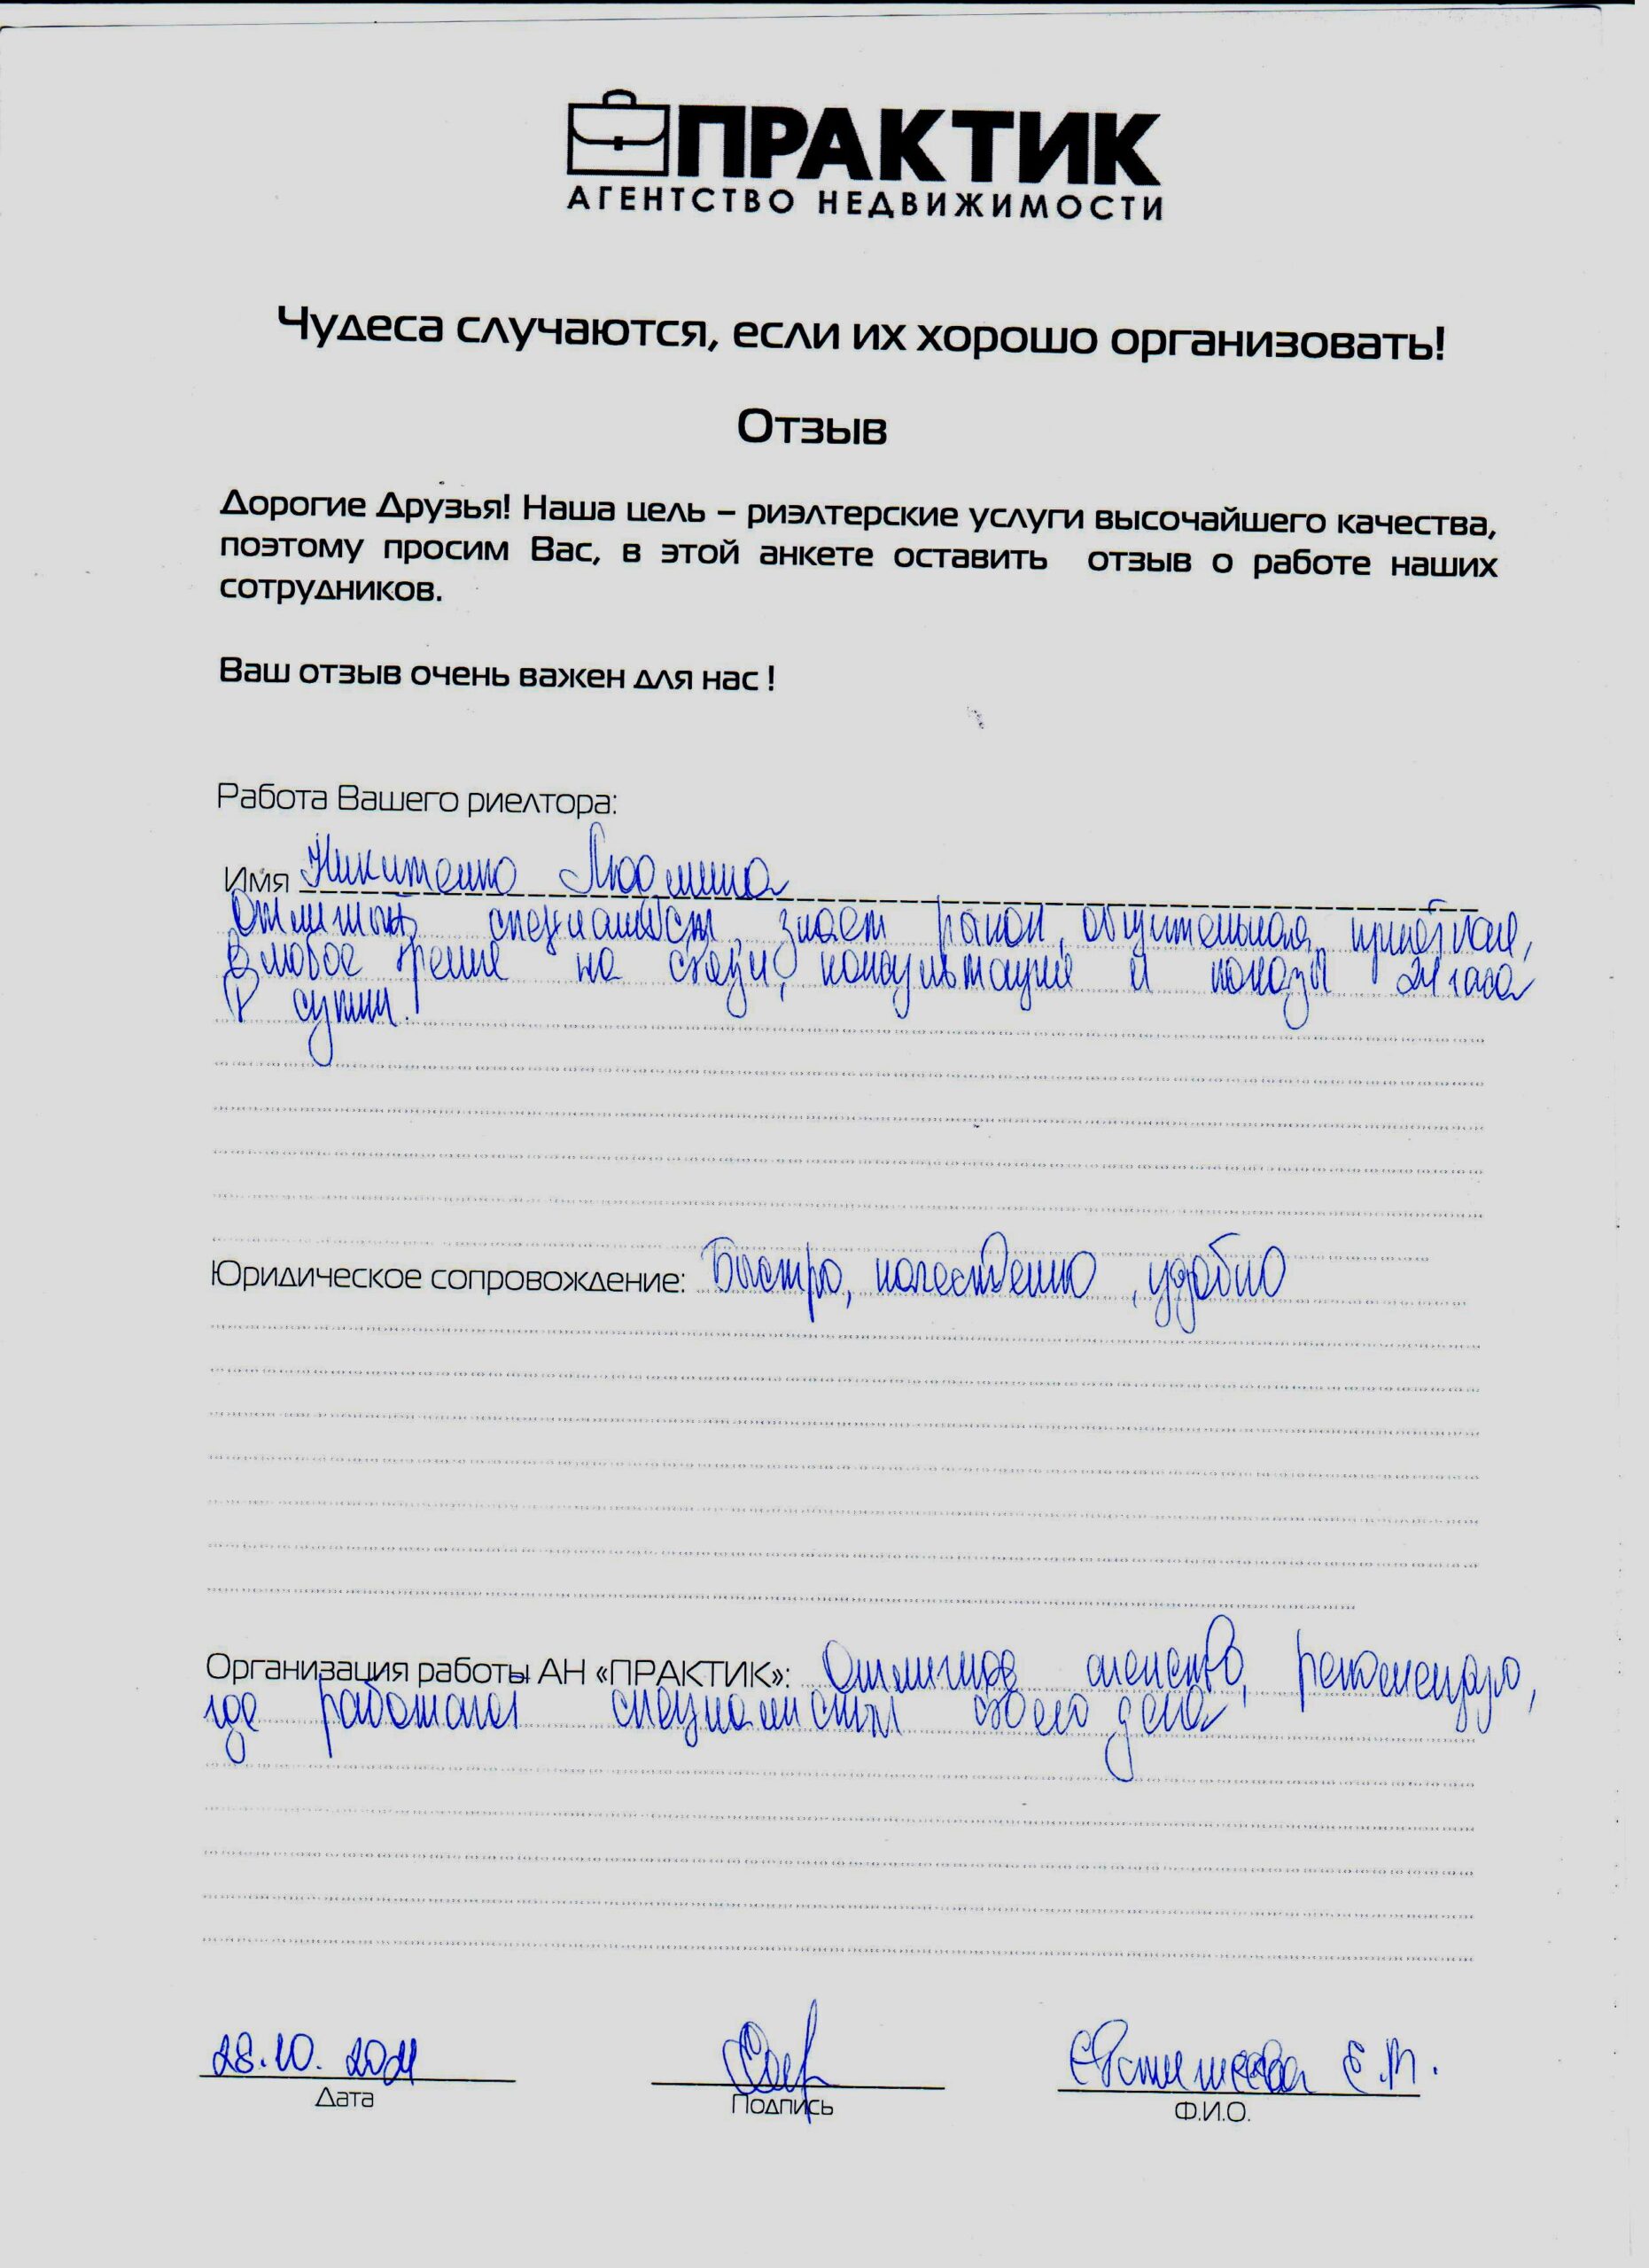 ПРАКТИК
АГЕНТСТВО НЕДВИЖИМОСТИ
Чудеса случаются, если их хорошо организовать!
Отзыв
Дорогие Друзья! Наша цель – риэлтерские услуги высочайшего качества,
поэтому просим Вас, в этой анкете оставить отзыв о работе наших
сотрудников.
Ваш отзыв очень важен для нас !
Работа Вашего риелтора:
Имя Никитенко Людмила
Отличный специалист, знает рынок, общительная, приятная,
В любое время на связи, консультации и показы 24 часа
в сутки.
Юридическое сопровождение: Быстро, качественно, удобно
Организация работы АН «ПРАКТИК»: Отличное агенство, рекомендую,
где работают специалисты своего дела
28.10. 2021
Дата
Подпись
Е.
Ф.И.О.